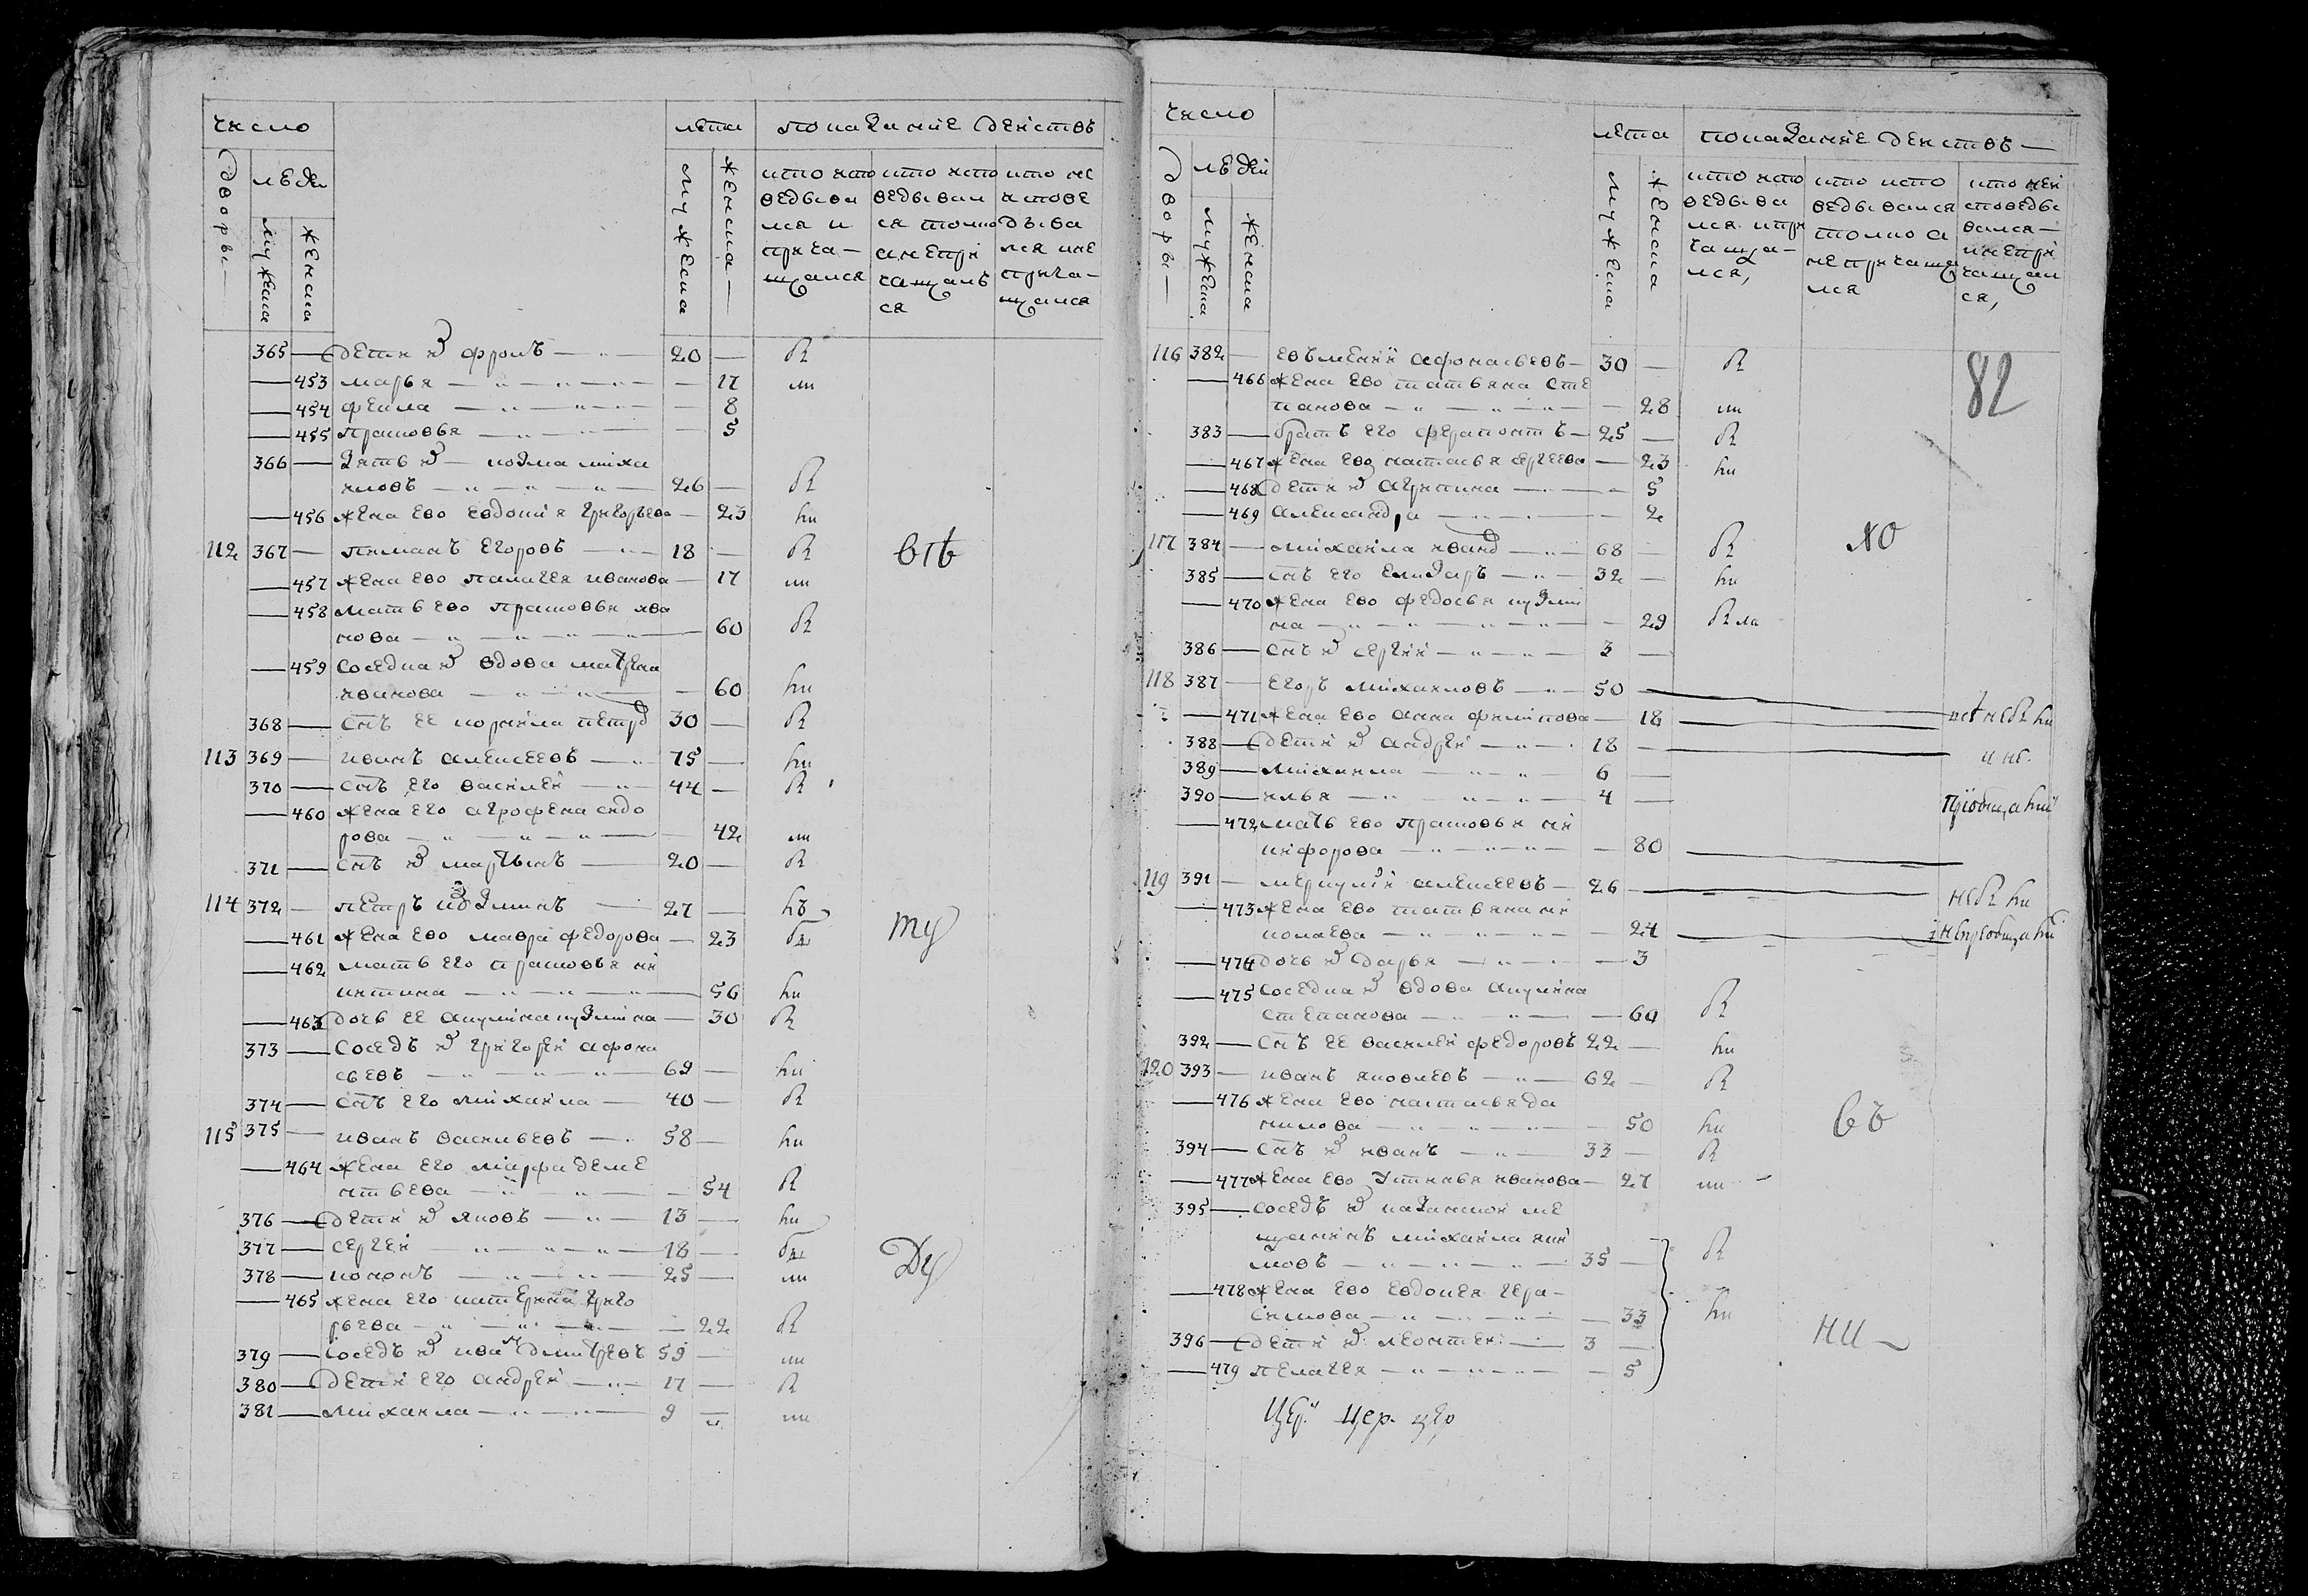 число
лета
показание действъ
дворы
людеи
мужеска
женска
мужеска
женска
кто испо
ведыва
лся и
прича-
щался
кто испо
ведывал
ся токмо
а непри
чащалъ
ся
кто не
испове
дыва
лся ине
прича-
щался
365 — дети их фролъ — 20 — я
— 453 марья — — 17 ли
— 454 фекла — — 8
— 455 прасковья — — 5
366 — зять их козма миха
иловъ — 26 — я
— 456 жена ево евдокия григорьева — 23 ни
112 367 — пиманъ егоровъ — 18 — я
— 457 жена ево палагея иванова — 17 ли
— 458 мать ево прасковья ива
нова — 60 я
— 459 соседка их вдова матрена
иванова — — 60 ни
368 — снъ ее корнила петров 30 — я
113 369 — иванъ алексеевъ — 75 — ни
370 — снъ его василеи — 44 — я
— 460 жена его агрофена сидо
рова — — 42 ли
371 — снъ их мартынъ — 20 — я
114 372 — петръ козминъ — 27 — нъ
— 461 жена ево мавра федорова — 23
ту
— 462 мать его прасковья ни
китина — 56 ни
— 463 дочь ее акулина кузмина — 30 я
373 — соседъ их григореи афона
сьевъ — 69 — ни
374 — снъ его михаила — 40 — я
115 375 — иванъ васильевъ — 58 — ни
— 464 жена его марфа деме
нтьева — — 54 я
376 — дети их яковъ — 13 — ни
377 — сергеи — 18 —
378 — кононъ — 25 — ли
Ду
— 465 жена его катерина григо
рьева — — 22 я
379 — соседъ их иван дмитревъ 59 — ли
380 — дети его андреи — 17 — я
381 — михаила — 9 — ли
число
лета
показание действъ —
дворы —
людеи
мужеска
женска
мужеска
женска
кто испо
ведыва
лся ипри
чаща-
лся,
кто испо
ведывался
токмо а
непричаща
лся
кто неи
споведы
вался —
инепри
чащал
ся,
82
116 382 — евъмении афонасьевъ — 30 — я
— 466 жена ево татьяна сте
панова — — 28 ли
383 — братъ его ферапонтъ — 25 — я
— 467 жена ево настасья сергеева — 23 ни
— 468 дети их агрипина — — 5
— 469 александра — — 2
117 384 — михаила иванов — 68 — я
но
385 — снъ его елизаръ — 32 — ни
— 470 жена ево федосья кузми
на — — 29 я ла
386 — снъ их сергии — 3 —
118 387 — егоръ михаиловъ — 50 —
— 471 жена ево анна филипова — 18
388 — дети их андреи — 18 —
389 — михаила — 6 —
390 — илья — 4 —
— 472 мать ево прасковья ни
кифорова — — 80
119 391 — меркулии алексеевъ — 26 —
— 473 жена ево татьяна ни
колаева — — 24
— 474 дочь их дарья — — 3
— 475 соседка их вдова акулина
степанова — — 60 я
392 — снъ ее василеи федоровъ 22 — ни
120 393 — иванъ яковлевъ — 62 — я
— 476 жена ево настасья да
нилова — — 50 ни
въ
394 — снъ их иванъ — 33 — я
— 477 жена ево устинья иванова — 27 ли
395 — соседъ их казанскои ме
щанинъ михаила яки
мовъ — 35 — я
— 478 жена ево евдокея гера-
симова — — 33 ни
ки
396 — дети их леонтеи — 3 —
— 479 пелагея — — 5
цер. цер. цер